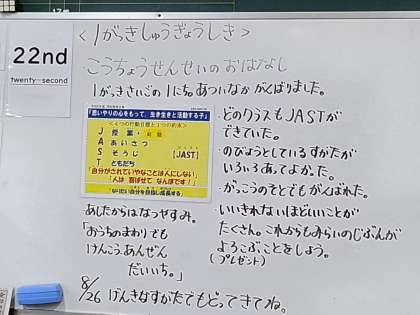 22nd
twenty-second
＜1がっきしゅうぎょうしき＞
こうちょうせんせいのおはなし
1がっきさいごの1にち。あついなかがんばりました。
「思いやりの心をもって、生き生きと活動する子」
＜4つの行動目標と1つの約束＞
J 授業・
A あいさつ
S そうじ
T ともだち
【JAST】
「自分がされていやなことは人にしない」
「人は 喜ばせて なんぼです！」
なりたい自分を目指し成長する
・どのクラスもJASTが
できていた。
・のびようとしているすがたが
いろいろあってよかった。
・がっこうのそとでもがんばれた。
・いいきれないほどいいことが
たくさん。これからもみらいのじぶんが
よろこぶことをしよう。
(プレゼント)
あしたからはなつやすみ。
「おうちのまわりでも
けんこうあんぜん
だいいち。」
8/26 げんきなすがたでもどってきてね。